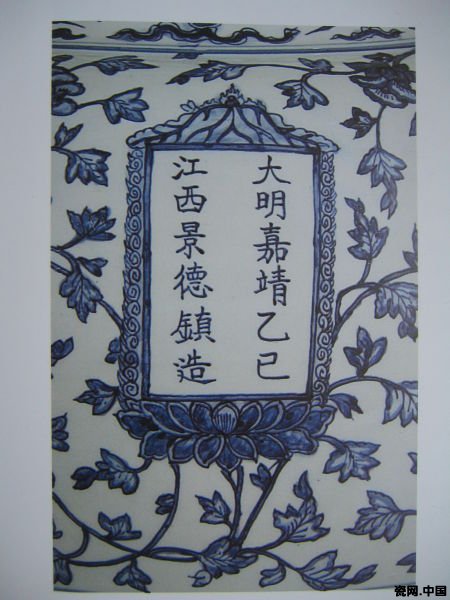 大明嘉靖乙巳
江西景德鎮造
瓷网.中国